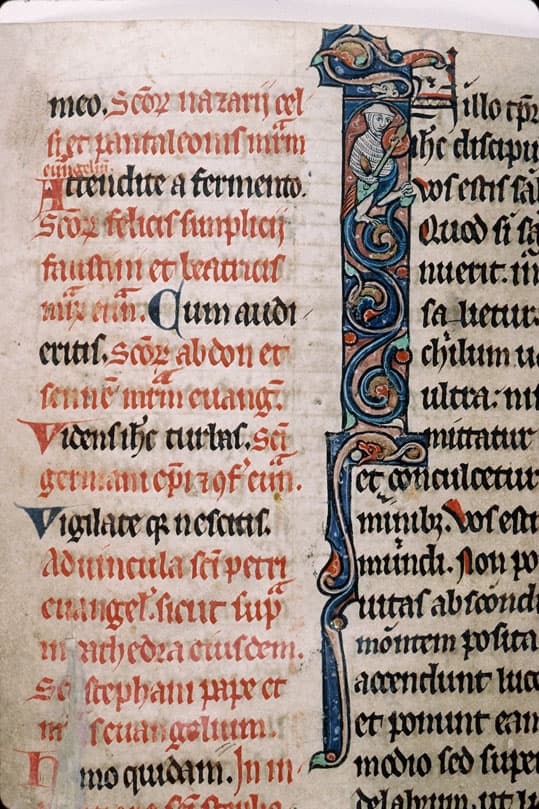 meo. Scōꝝ nazarij cel
si et pantaleonis mr̄m
euangeliū.
Attendite a fermento.
Scōꝝ felicis simplicij
faustini et beatricis
mr̄ꝝ euñ. Cum audi
eritis. Scōꝝ abdon et
sennēs mr̄m euang̃.
Videns ihc̄ turbas. Sc̄i
germani ep̄i ⁊ ꝯf̄ euñ.
Vigilate qꝛ nescitis.
Aduincula sc̄i petri
euangel̄. sicut sup̄
in cathedra eiusdem.
Sc̄i stephani pape et
m̄r̄s euangelium.
Homo quidam. In in
illo tp̄r
ihc̄ discipu
Vos estis sal
Quod si sa
nuerit. in
salietur
chilum ua
ultra: nisi
mittatur
et conculcetur
minibꝫ. Vos esti
mundi. Non po
uitas abscondi
montem posita
accendunt luce
et ponunt eam
modio sed super